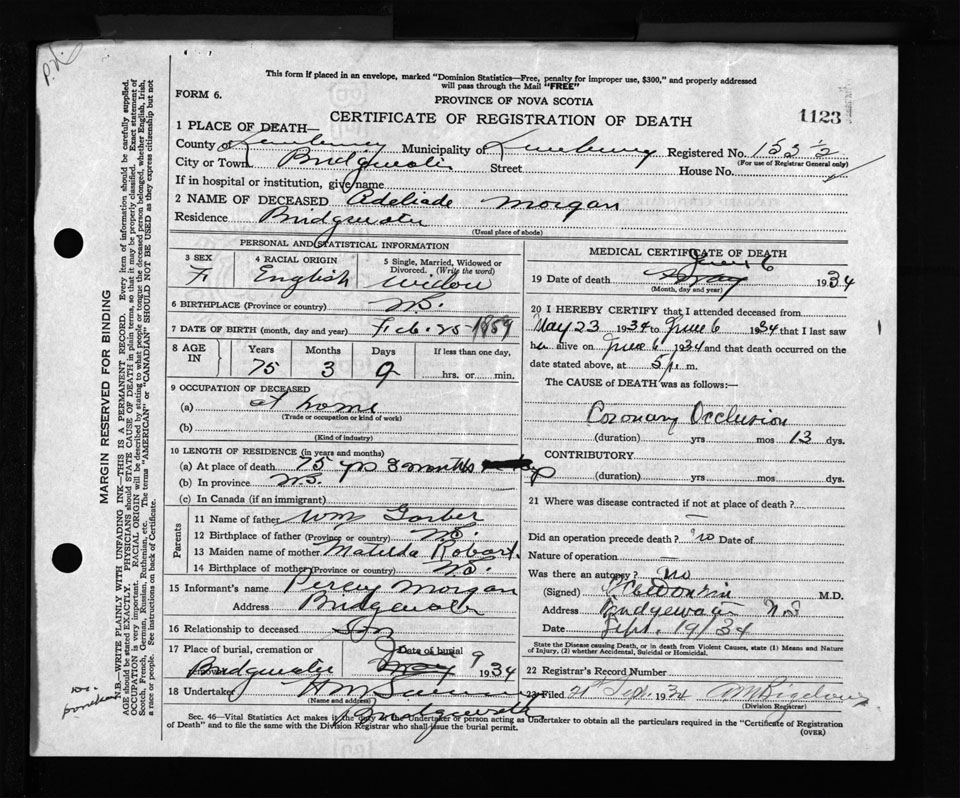 This form if placed in an envelope, marked "Dominion Statistics—Free, penalty for improper use, $300," and properly addressed
will pass through the Mail "FREE"
FORM 6.
PROVINCE OF NOVA SCOTIA
CERTIFICATE OF REGISTRATION OF DEATH
1123
1 PLACE OF DEATH—
County of Lunenburg Municipality of Lunenburg Registered No. 155½
City or Town Bridgewater Street House No.
(For use of Registrar General only)
If in hospital or institution, give name
2 NAME OF DECEASED Adeliade Morgan
Residence Bridgewater
(Usual place of abode)
PERSONAL AND STATISTICAL INFORMATION
3 SEX F
4 RACIAL ORIGIN English
5 Single, Married, Widowed or Divorced. (Write the word) Widow
6 BIRTHPLACE (Province or country) N.S.
7 DATE OF BIRTH (month, day and year) Feb. 25 1859
8 AGE IN Years Months Days If less than one day,
75 3 9 hrs. or min.
9 OCCUPATION OF DECEASED
(a) at home
(Trade or occupation or kind of work)
(b)
(Kind of industry)
10 LENGTH OF RESIDENCE (in years and months)
(a) At place of death 75 yrs 3 months
(b) In province N.S.
(c) In Canada (if an immigrant)
Parents
11 Name of father Wm
12 Birthplace of father (Province or country) N.S.
13 Maiden name of mother Matilda Robart
14 Birthplace of mother (Province or country) N.S.
15 Informant's name Percy Morgan
Address Bridgewater
16 Relationship to deceased Son
17 Place of burial, cremation or removal Bridgewater
Date of burial May 9 1934
18 Undertaker
(Name and address)
Bridgewater
MEDICAL CERTIFICATE OF DEATH
June 6
19 Date of death May 1934
(Month, day and year)
20 I HEREBY CERTIFY that I attended deceased from
May 23 1934 to June 6 1934 that I last saw
her alive on June 6 1934 and that death occurred on the
date stated above, at 5 p.m.
The CAUSE of DEATH was as follows:
Coronary Occlusion
(duration) yrs mos 13 dys.
CONTRIBUTORY
(duration) yrs mos dys.
21 Where was disease contracted if not at place of death?
Did an operation precede death? no Date of
Nature of operation
Was there an autopsy? no
(Signed) M.D.
Address Bridgewater N S
Date Sept. 19/34
State the Disease causing Death, or in death from Violent Causes, state (1) Means and Nature
of Injury, (2) whether Accidental, Suicidal or Homicidal.
22 Registrar's Record Number
23 Filed 21st Sept 1934
(Division Registrar)
Sec. 46—Vital Statistics Act makes it the duty of the Undertaker or person acting as Undertaker to obtain all the particulars required in the "Certificate of Registration
of Death" and to file the same with the Division Registrar who shall issue the burial permit.
(OVER)
MARGIN RESERVED FOR BINDING
N.B.—WRITE PLAINLY WITH UNFADING INK—THIS IS A PERMANENT RECORD. Every item of information should be carefully supplied.
AGE should be stated EXACTLY. PHYSICIANS should STATE CAUSE OF DEATH in plain terms, so that it may be properly classified. Exact statement of
OCCUPATION is very important. RACIAL ORIGIN will be described by stating to what people or tongue the deceased person belonged, whether English, Irish,
Scotch, French, German, Russian, Ruthenian, etc. The terms "AMERICAN" or "CANADIAN" SHOULD NOT BE USED as they express citizenship but not
a race or people. See instructions on back of Certificate.